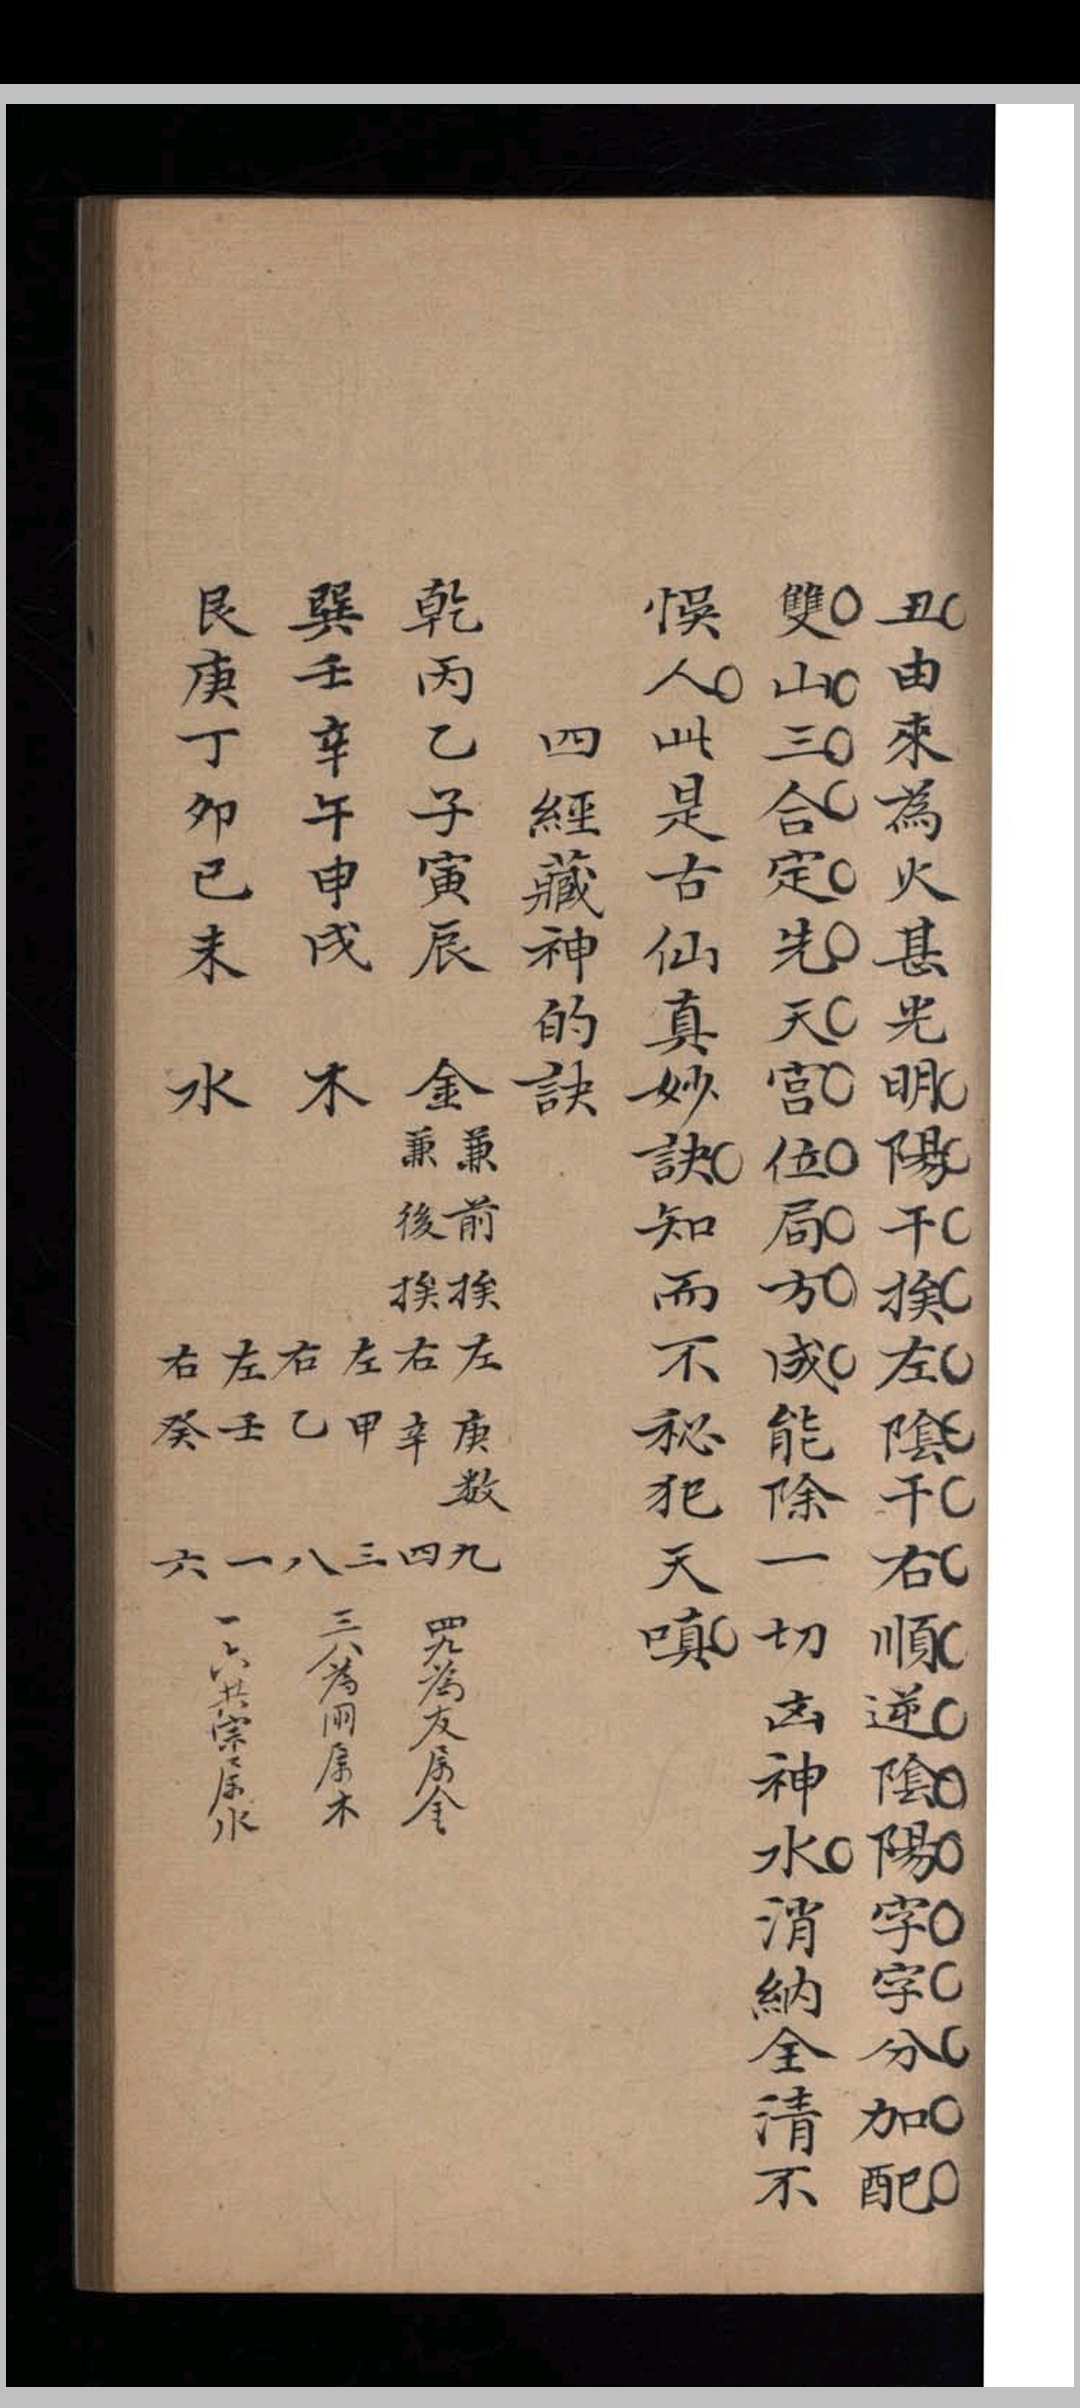 丑由來為火甚光明陽干挨左陰干右順逆陰陽字字分加配
雙山三合定先天宮位局方成能除一切凶神水消納全清不
悞人此是古仙真妙訣知而不秘犯天嗔
四經藏神的訣
乾丙乙子寅辰 金 兼前挨左庚数九 兼後挨右辛四 四九為友属金
巽壬辛午申戌 木 左甲三 右乙八 三八為朋属木
艮庚丁卯巳未 水 左壬一 右癸六 一六共宗属水